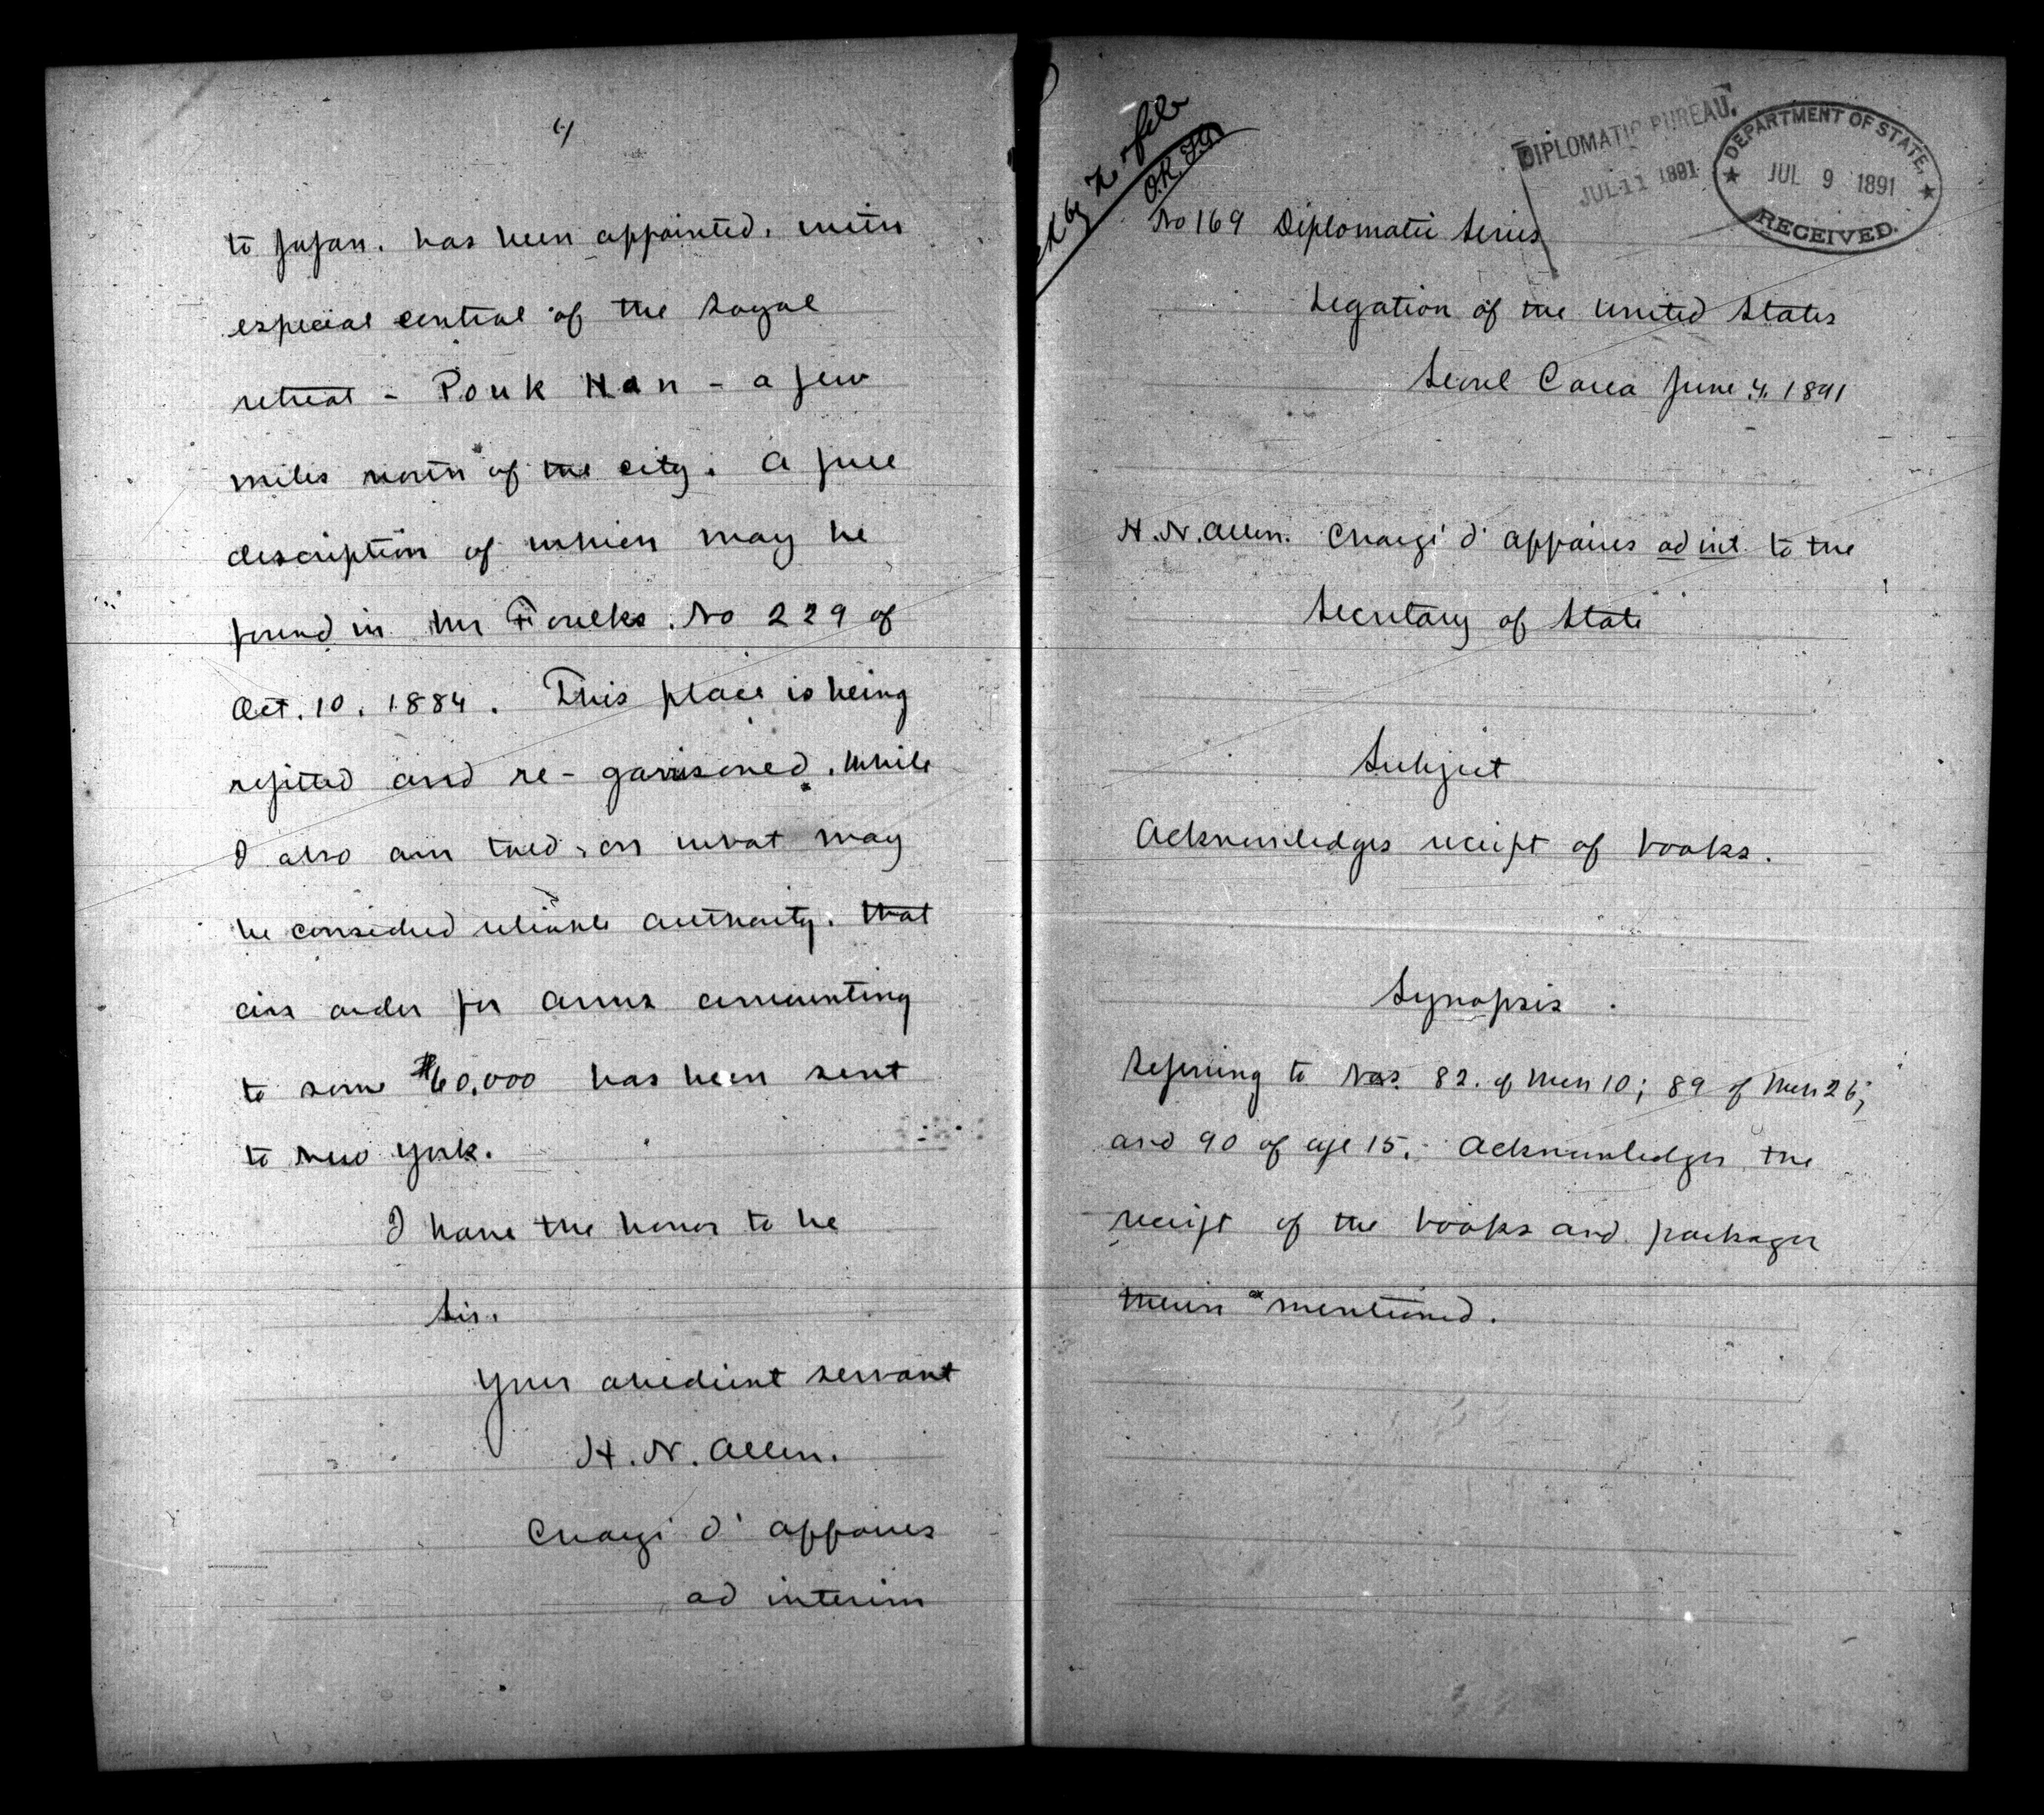 4
to Japan. has been appointed, with
especial control of the Royal
retreat - Pouk Han - a few
miles north of the city. A full
description of which may be
found in Mr Foulks No 229 of
Oct. 10. 1884. This place is being
refitted and re-garrisoned. While
I also am told, on what may
be considered reliable authority. that
an order for arms amounting
to some $60,000 has been sent
to New York.
I have the honor to be
Sir.
Your obedient servant
H. N. Allen.
Chargé d' affaires
ad interim
O.K.
DIPLOMATIC BUREAU.
JUL 11 1891
DEPARTMENT OF STATE,
JUL 9 1891
RECEIVED.
No 169 Diplomatic Series
Legation of the United States
Seoul Corea June 4. 1891
H. N. Allen. Chargé d' affaires ad int. to the
Secretary of State
Subject
Acknowledges receipt of books.
Synopsis.
Referring to Nos. 82. of Mch 10; 89 of Mch 26;
and 90 of Apl 15. Acknowledges the
receipt of the books and packages
therein mentioned.